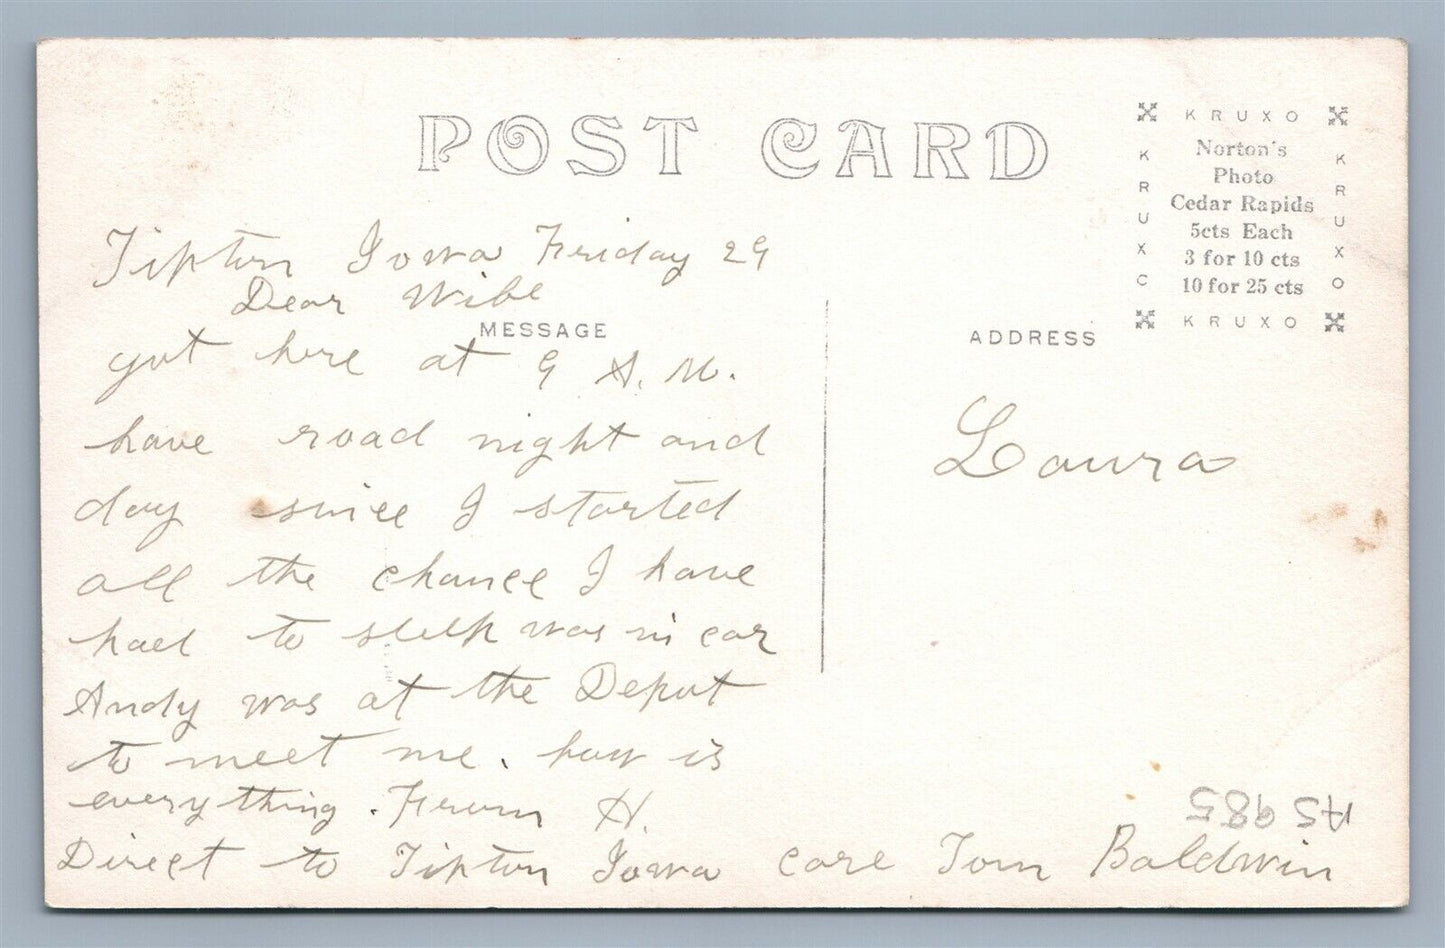 POST CARD
KRUXO
KRUXO
KRUXO
KRUXO
Norton's
Photo
Cedar Rapids
5cts Each
3 for 10 cts
10 for 25 cts
Tipton Iowa Friday 29
Dear Wife
MESSAGE
got here at 9 A. M.
have road night and
day since I started
all the chance I have
had to sleep was in car
Andy was at the Depot
to meet me. how is
everything. From H.
Direct to Tipton Iowa care Tom Baldwin
ADDRESS
Laura
AS 985